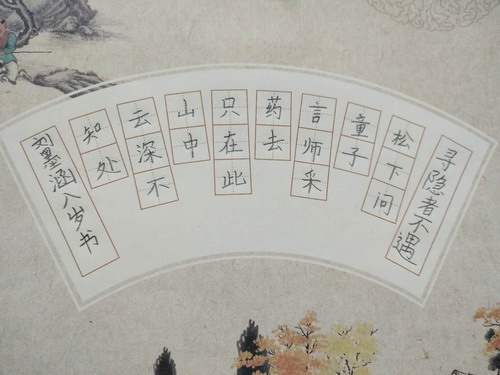 寻隐者不遇
松下问
童子
言师采
药去
只在此
山中
云深不
知处
刘墨涵八岁书